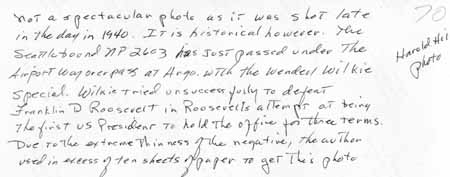 not a spectacular photo as it was shot late
in the day in 1940. It is historical however. The
Seattlebound NP 2603 has just passed under the
Airport Way overpass at Argo. with the Wendell Wilkie
Special. Wilkie tried unsuccessfully to defeat
Franklin D Roosevelt in Roosevelts attempt at being
the first US President to hold the office for three terms.
Due to the extreme thinness of the negative, the author
used in excess of ten sheets of paper to get this photo
70
Harold Hill
photo